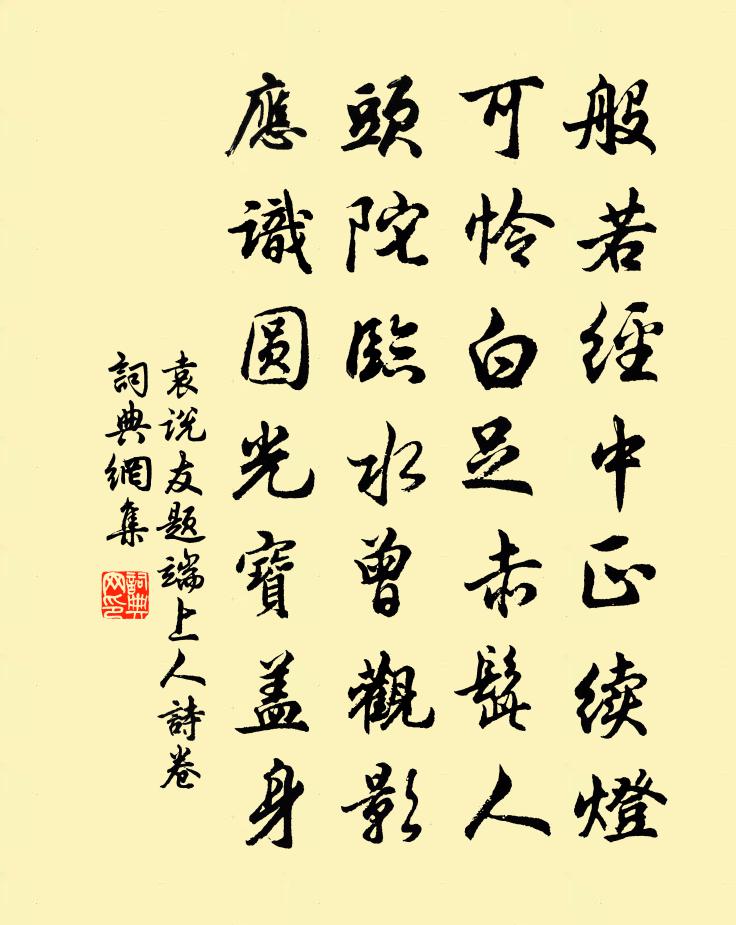 般若經中正续燈
可怜白足赤髭人
頭陀臨水曾觀影
應識圆光寶盖身
袁说友题端上人詩卷
詞典網集
詞典网印